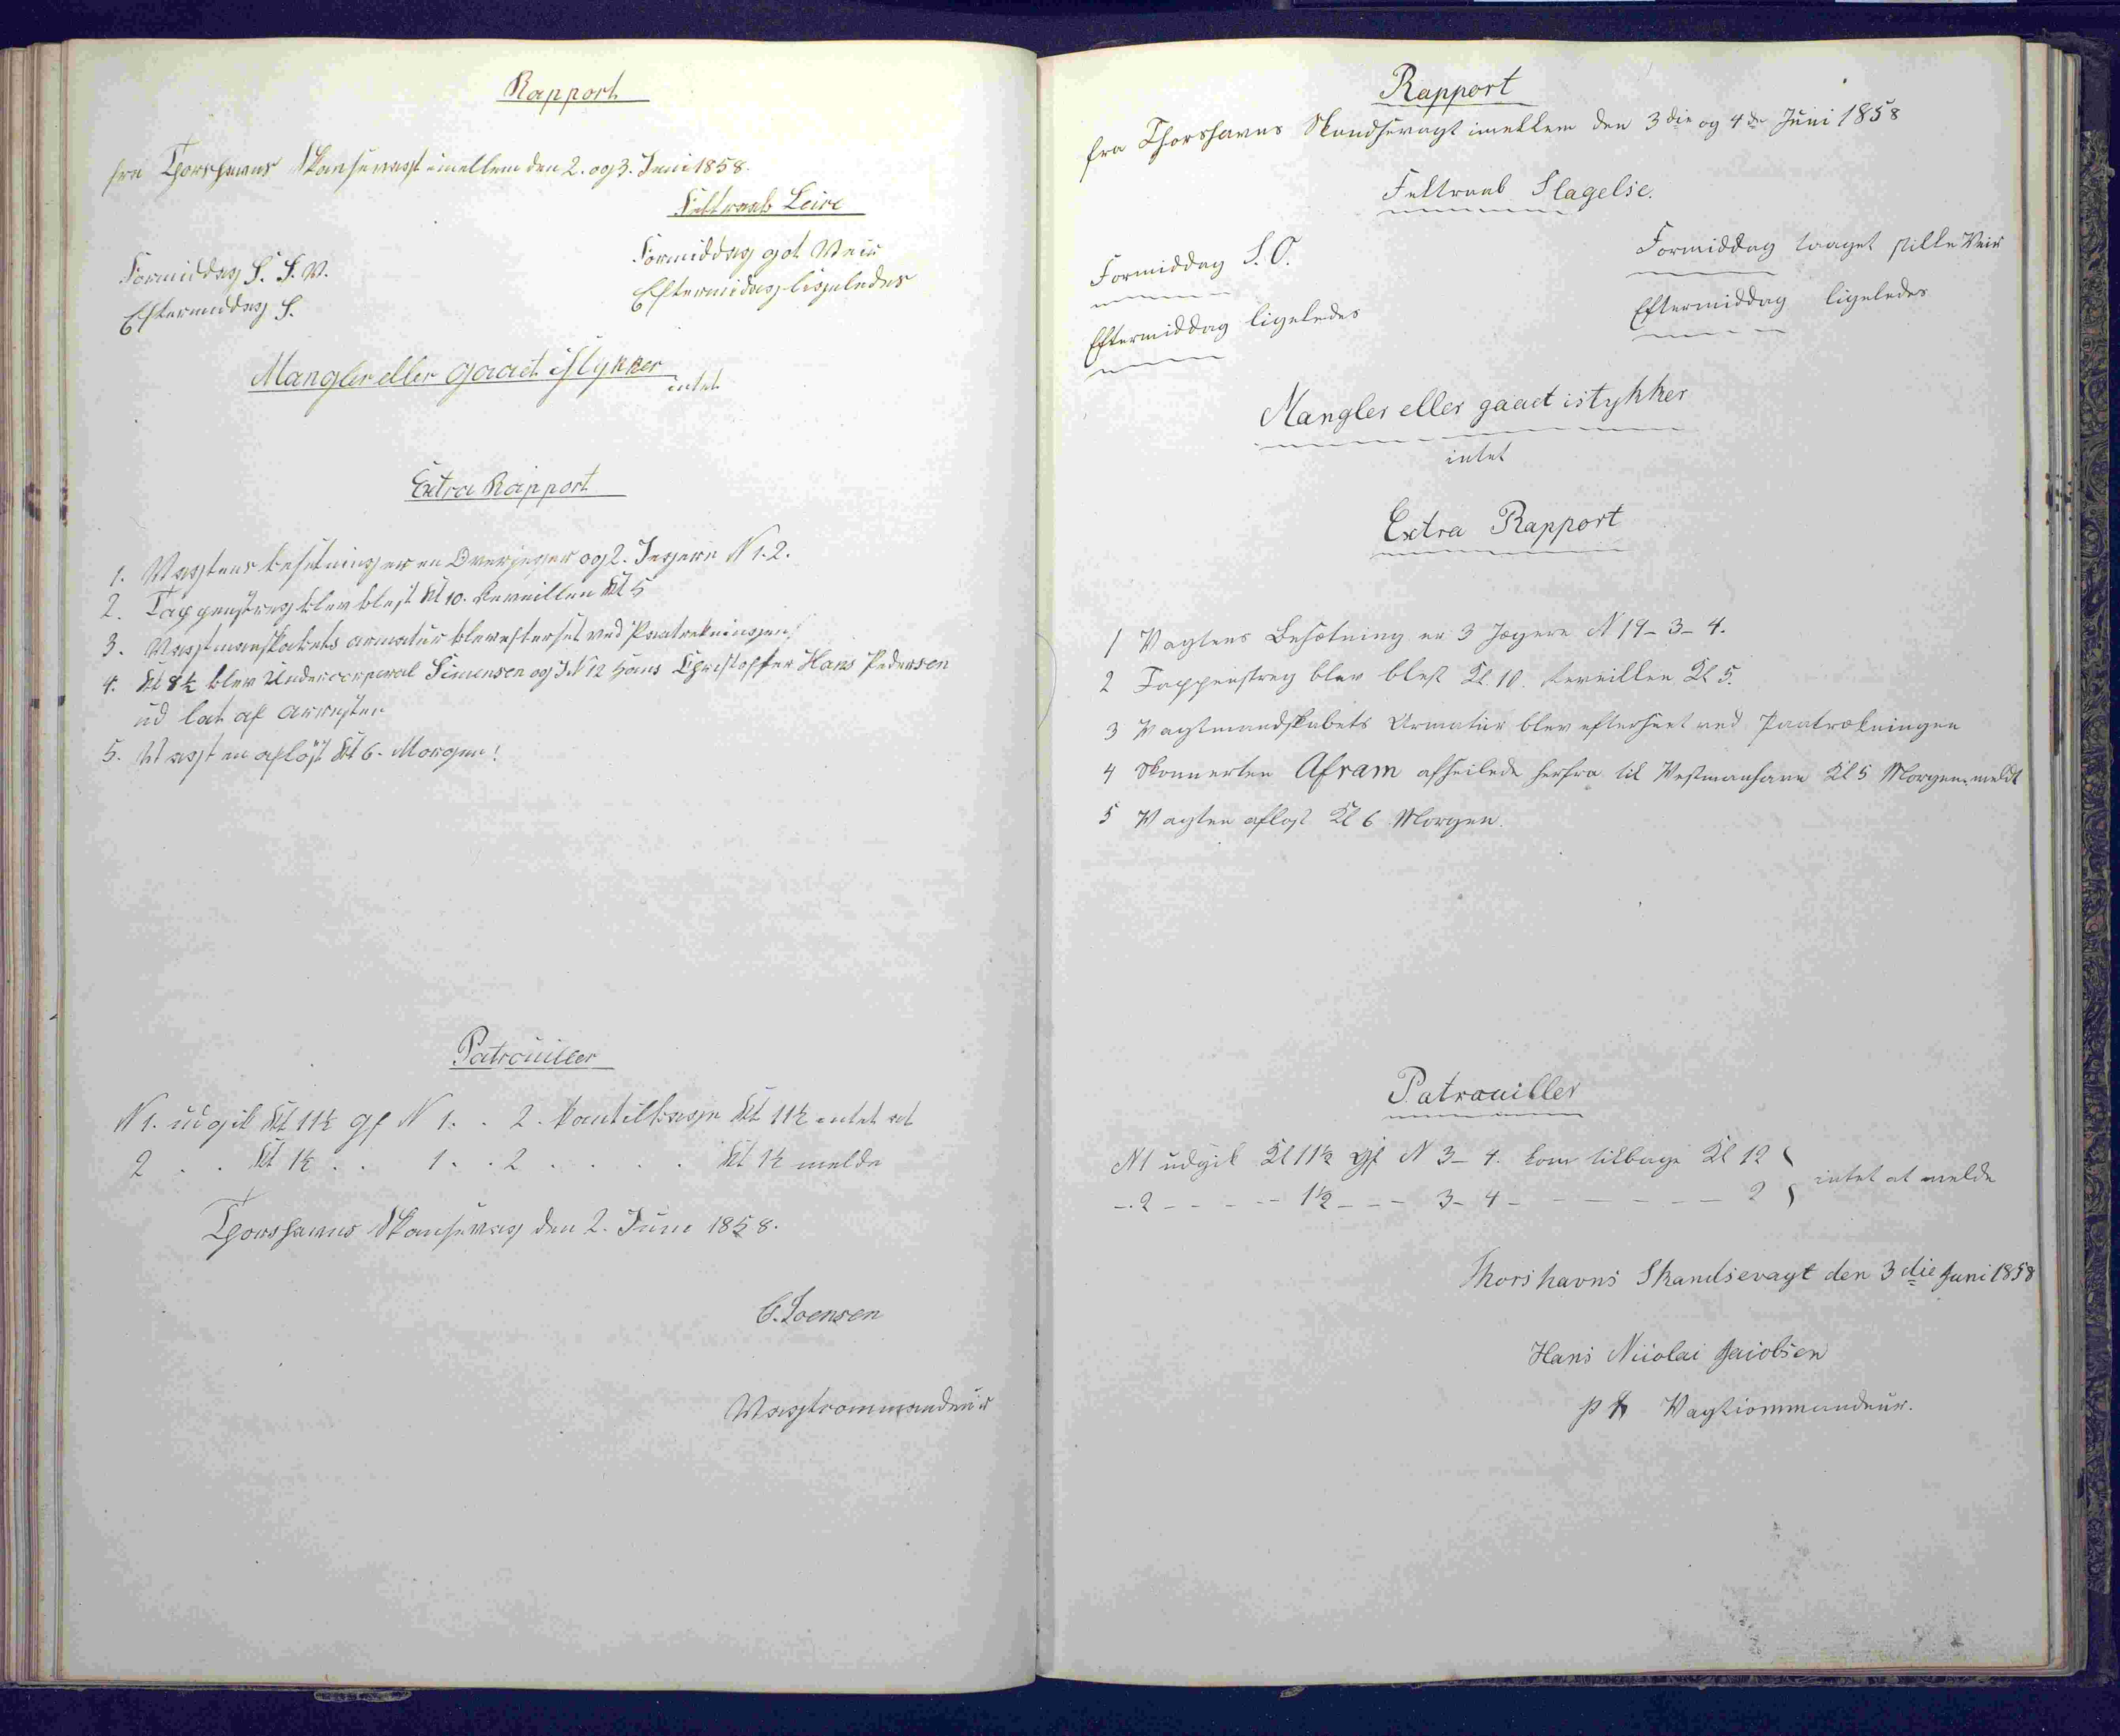 Rapport
fra Thorshavns Skansevagt imellem den 2. og 3. Juni 1858.
Feltraab Leire
Formiddag S. S. V.
Eftermiddag S.
Formiddag got Veir
Eftermidag ligeledes
Mangler eller gaaet istykker
intet
Extra Rapport
1. Vagtens besetning er en Overjeger og 2. Jegere N 1. 2.
2. Tappenstreg blev blest Kl 10. Reveillen Kl 5
3. Vagtmanskabets armatur blev efterset ved Paatrekningen!
4. Kl 8½ blev Undercorporal Simensen og J. N 12 Hans Christoffer Hans Pedersen
ud lat af arresten
5. Vagten aflöst Kl 6. Morgen!
Patrouiller
N 1. udgik Kl 11½ gf N 1. . 2. kom tilbage Kl 11½ intet at
2 . . Kl 1½ . . 1. . 2 . . . . . Kl 1½ melde
Thorshavns Skansevag den 2. Juni 1858.
C. Joensen
Vagtcommandeur
Rapport
fra Thorshavns Skandsevagt imellem den 3die og 4de Juni 1858
Feltraab Slagelse.
Formiddag S. O.
Eftermiddag ligeledes
Formiddag taaget stille Veir
Eftermiddag ligeledes
Mangler eller gaaet istykker
intet
Extra Rapport
1 Vagtens Besætning er 3 Jægere N 19 - 3 - 4.
2 Tappenstreg blev blest Kl. 10. Reveillen Kl 5.
3 Vagtmandskabets Armatur blev efterseet ved Paatrækningen
4 Skonnerten Afram afseilede herfra til Vestmanhavn Kl 5 Morgen meldt
5 Vagten aflost Kl 6 Morgen.
Patrouiller
N 1 udgik Kl 11½ gf N 3 - 4. kom tilbage Kl 12 } intet at melde
- . 2 - - - - - 1½ - - - 3 - 4 - - - - - - - 2 }
Thorshavns Skandsevagt den 3die Juni 1858
Hans Nicolai Jacobsen
p t Vagtcommandeur.